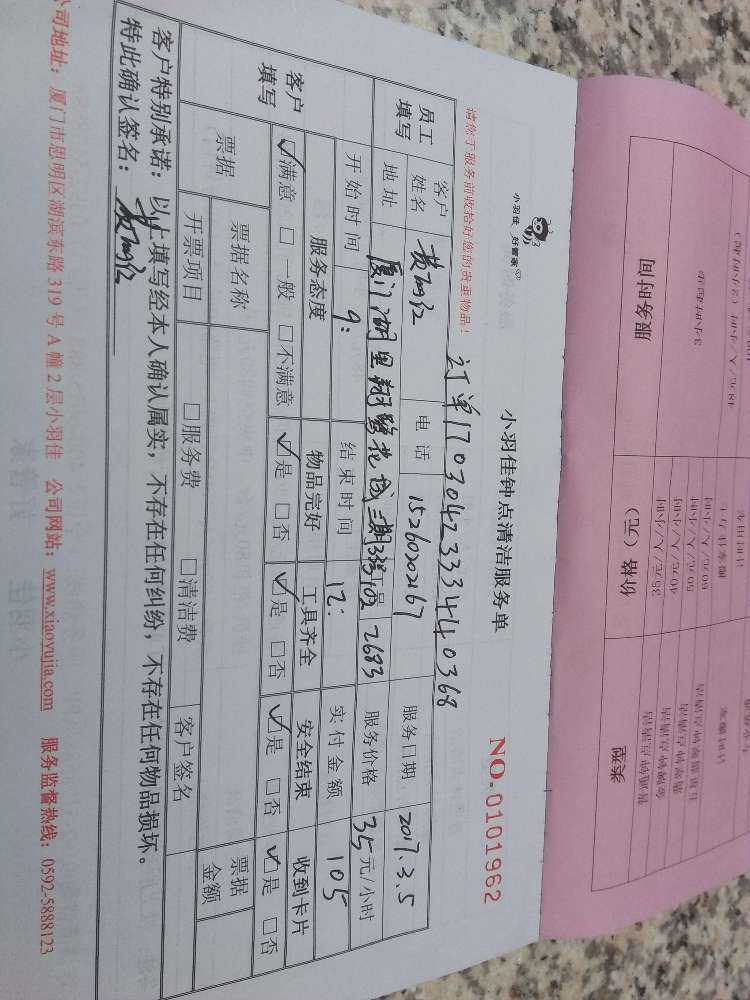 小羽佳 好管家
小羽佳钟点清洁服务单
NO.0101962
请您于服务前收拾好您的贵重物品！
订单17030423334440368
员工填写
客户姓名
电话
15260202167
服务日期
2017.3.5
地址
厦门湖里翔鹭花城二期
工号
2683
服务价格
35元/小时
客户填写
开始时间
9:
结束时间
12:
实付金额
105
服务态度
物品完好
工具齐全
安全结束
收到卡片
☑满意 □一般 □不满意
☑是 □否
☑是 □否
☑是 □否
☑是 □否
票据
票据名称
票据金额
开票项目
□服务费 □清洁费
客户签名
客户特别承诺：以上填写经本人确认属实，不存在任何纠纷，不存在任何物品损坏。
特此确认签名：
公司地址：厦门市思明区湖滨东路319号A幢2层小羽佳 公司网站：www.xiaoyujia.com 服务监督热线：0592-5888123
类型
价格（元）
服务时间
35元/人/小时
40元/人/小时
50元/人/小时
60元/人/小时